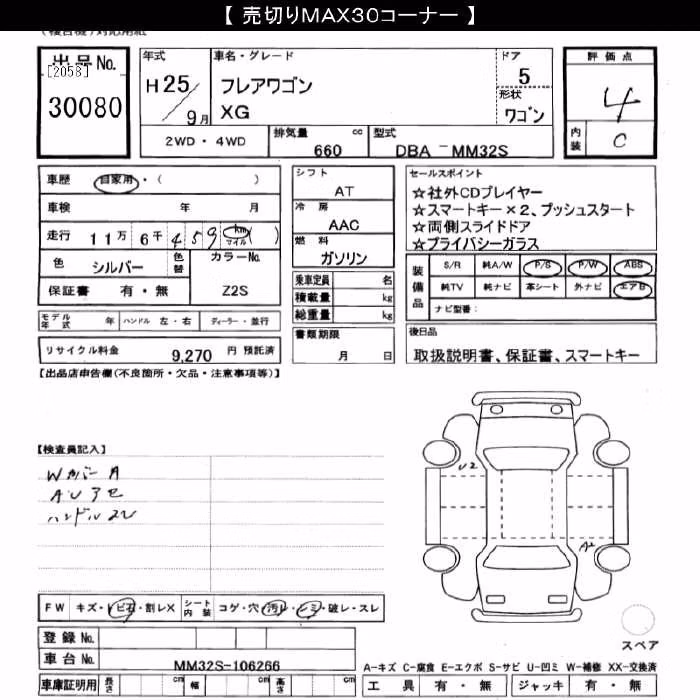 【 売切りMAX30コーナー 】
出品No.
[2058]
30080
年式
H25/9月
車名・グレード
フレアワゴン
XG
ドア
5
形状
ワゴン
評価点
4
内装
C
2WD・4WD
排気量 cc
660
型式
DBA-MM32S
車歴 自家用・( )
車検 年 月
走行 11万6千459 km マイル ( )
色 シルバー 色替
カラーNo.
Z2S
保証書 有・無
シフト
AT
冷房
AAC
燃料
ガソリン
乗車定員 名
積載量 kg
総重量 kg
セールスポイント
☆社外CDプレイヤー
☆スマートキー×2、プッシュスタート
☆両側スライドドア
☆プライバシーガラス
装備品
S/R 純A/W P/S P/W ABS
純TV 純ナビ 革シート 外ナビ エアB
ナビ型番:
モデル年式 年 ハンドル 左・右 ディーラー・並行
リサイクル料金 9,270 円 預託済
書類期限
月 日
後日品
取扱説明書、保証書、スマートキー
【出品店申告欄(不良箇所・欠品・注意事項等)】
【検査員記入】
Wカバー A
ハンドルスレ
U2
A2
FW キズ・トビ石・割レX シート内装 コゲ・穴・汚レ・シミ・破レ・スレ
登録No.
車台No. MM32S-106266
スペア
A-キズ C-腐食 E-エクボ S-サビ U-凹ミ W-補修 XX-交換済
車庫証明用 長さ cm 幅 cm 高さ cm
工具 有・無 ジャッキ 有・無